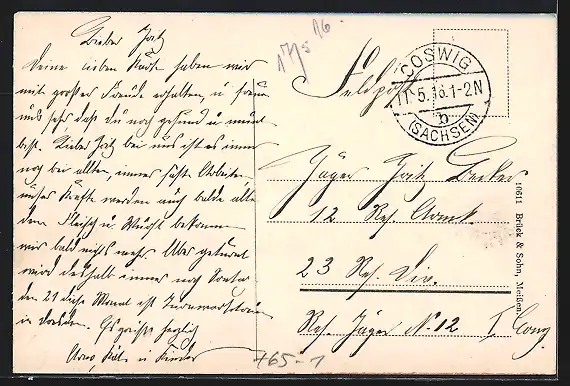 Lieber Fritz
Deine lieben Karten haben wir
mit großer Freude erhalten, u. freuen
uns sehr daß du noch gesund u. munter
bist. Lieber Fritz bei uns ist es immer
noch beim alten, immer feste Arbeiten
unsere Kräfte werden auch balde alle
denn Fleisch u. Wurst bekommen
wir bald nichts mehr. Aber geturnt
wird deshalb immer noch Sonntag
den 21 diesen Monat ist
in Dresden. Es grüßt herzlich
u. Kinder
17/5 16.
Feldpost
COSWIG
17.5.16.1-2N
b
(SACHSEN)
Jäger Fritz Becker
12 Res. Corps
23 Res. Div.
Res. Jäger N. 12 I Comp
10611 Brück & Sohn, Meißen.
+65-1